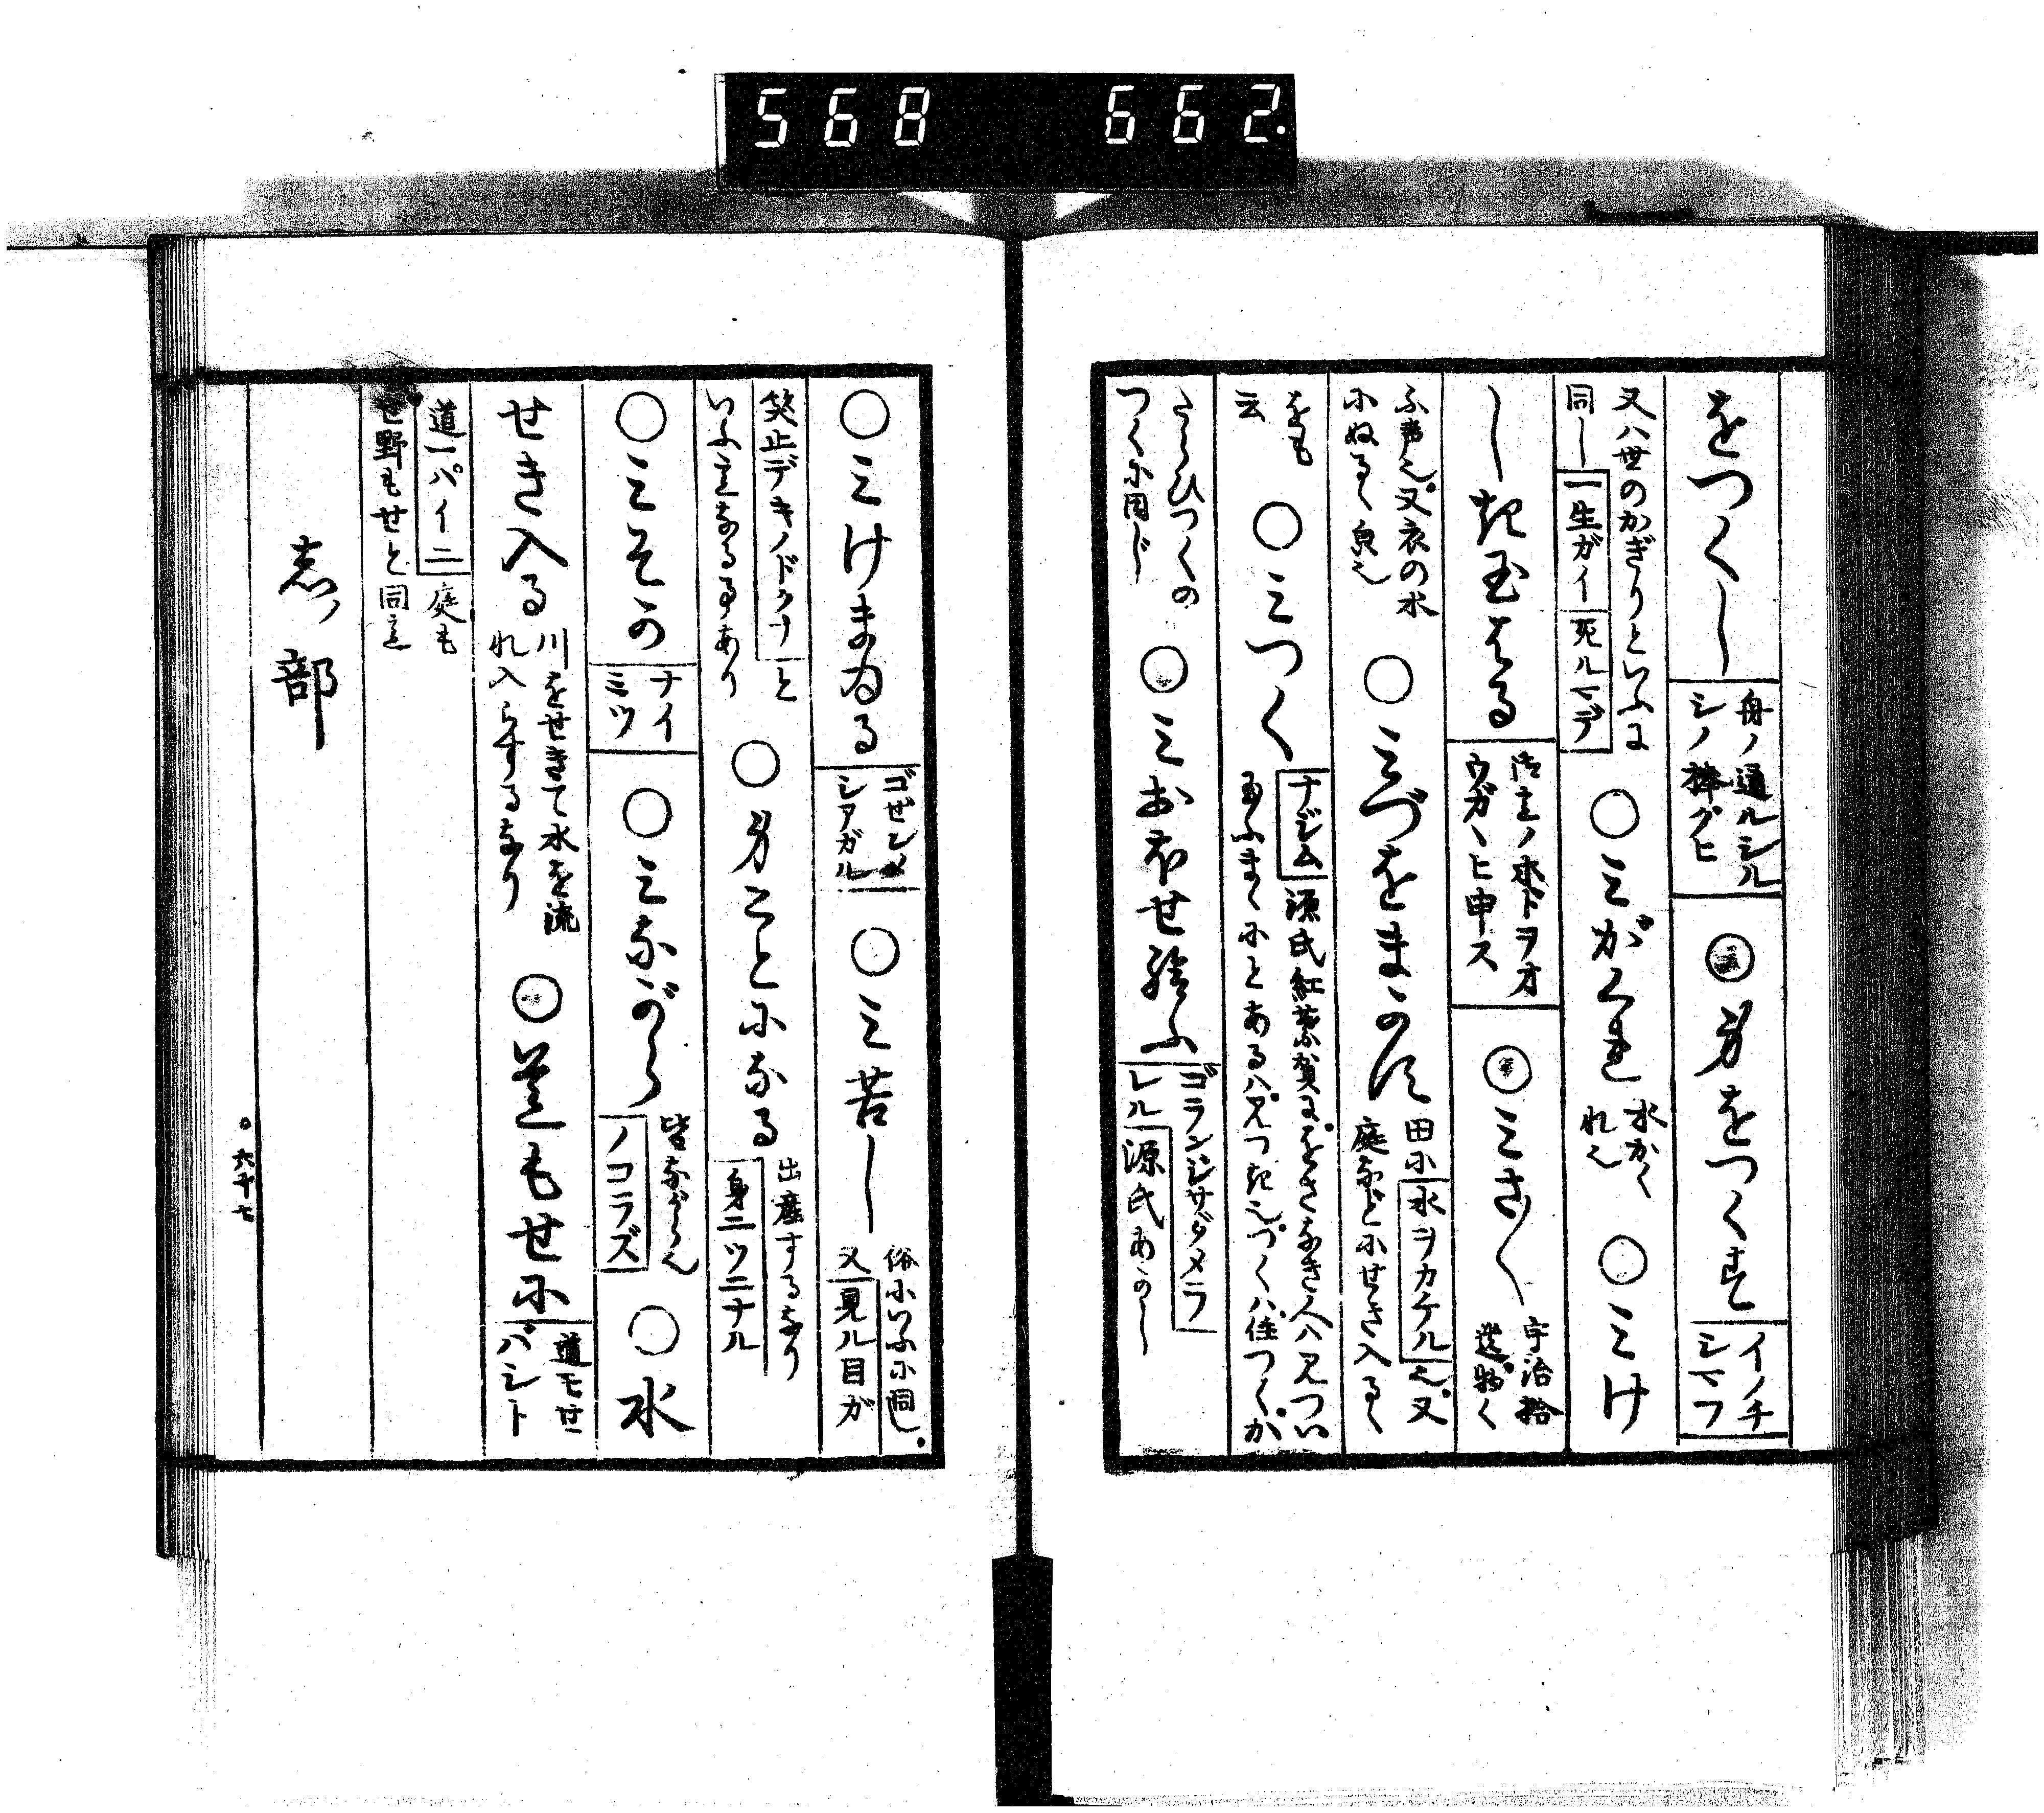 568 662.
をつくし 舟ノ通ルシル シノ棒グヒ ○身をつくす イノチ シマフ
又ハ世のかぎりといふに 同し 一生ガイ 死ルマデ ○みがくれ 水かく れ也 ○みけ
しき玉はる 御意ノ水ドヲオ ウガヽヒ申ス ○みさく 宇治拾 遺物く
ふ声也又衣の水 にぬるゝ 也 ○みづをまかす 田に水ヲカケル也又 庭などにせき入るゝ
をも 云 ○みつく ナジム 源氏紅葉賀にをさなき人ハ見つい 給ふまゝにとあるハ見つき也づくハ住つくが
さひつくの つくに同じ ○みおほせ給ふ ゴランジサダメラ レル 源氏あかし
○みけまゐる ゴぜンメ シアガル ○み苦し 俗にいふに同し 又見ル目ガ
笑止デキノドクナと いふ意なる事あり ○身ことになる 出産するなり 身二ツニナル
○みそか ナイ ミツ ○みながら 皆ながら也 ノコラズ ○水
せき入る 川をせきて水を流 れ入らするなり ○道もせに 道モせ パシト
道一パイニ 庭も せ野もせと同意
志ノ部
六十七